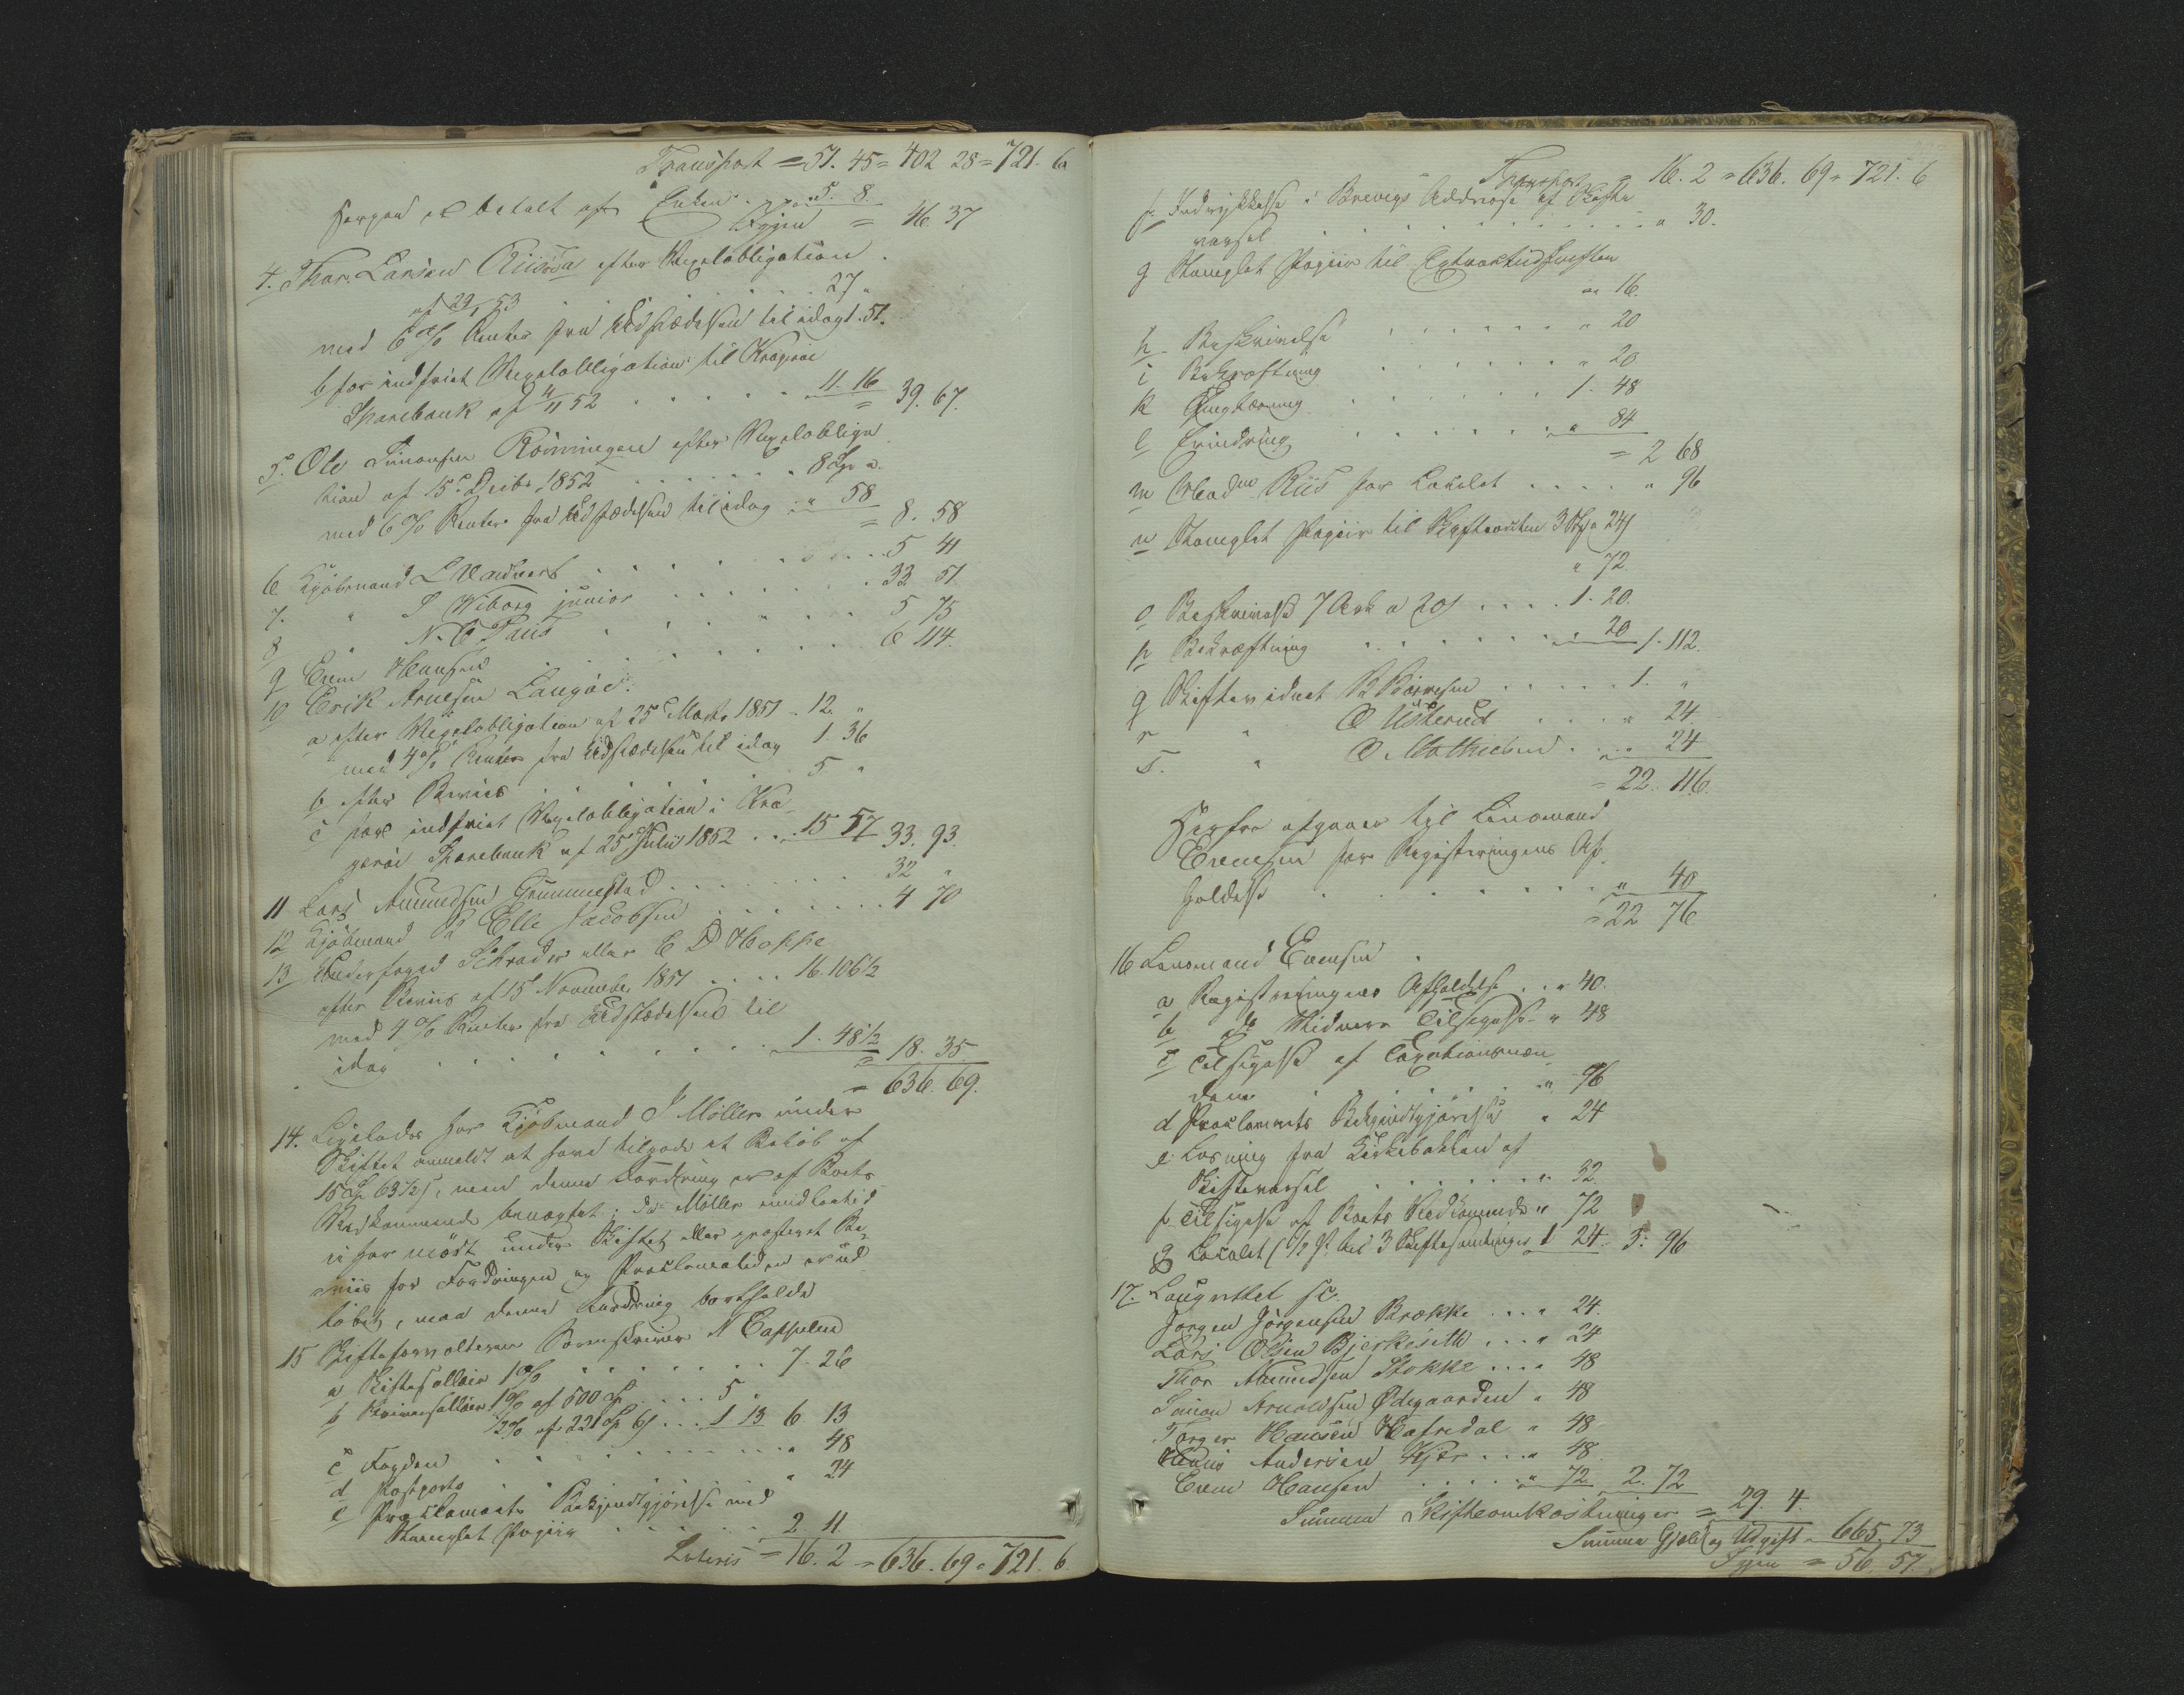 Transport = 51. 45 = 402 28 = 721. 6
Herpaa er betalt af Enken . . . 5. 8.
Igjen = 46. 37
4. Thor Larsen Riisøa efter Vexelobligation
af 29/ 53 . . . . . . 27 "
med 6 % Renter fra Udstædelsen til idag 1. 51.
b for indfriet Vexelobligation til Kragerøe
Sparebank af 4/11 52 . . . . . 11. 16
= 39. 67.
5. Ole Simonsen Rönningen efter Vexelobliga
tion af 15de Decbr 1852 . . . . . 8 Sp "
med 6 % Renter fra Udstædelsen til idag . " 58
= 8. 58
6 Kjöbmand L . . . . . . 5 41
7. " S Wiborg junior . . . . . 33 51
8 " N. C Paus . . . . . 5 75
9 Even Hansen . . . . . . 6 114.
10 Erik Arnesen Langöe:
a efter Vexelobligation af 25de Marts 1851 . 12. "
med 4 % Renter fra Udstædelsen til idag 1. 36
b efter Beviis . . . . . . 5 "
c for indfriet Vexelobligation i Kra-
gerøe Sparebank af 25 Julii 1852 . . . 15 57 33. 93.
11 Lars Amundsen Grummestad . . . . . 32 "
12 Kjöbmand Elle Jacobsen . . . . . 4 70
13 Underfoged Schrader eller C D Hoppe
efter Beviis af 15 November 1851 . . . . 16. 106½
med 4 % Renter fra Udstædelsen til
idag . . . . . . 1. 48½
= 18. 35
= 636. 69.
14. Ligeledes har Kjöbmand J Möller under
Skiftet anmeldt at have tilgode et Beløb af
15 Sp 63½ s, men denne Fordring er af Boets
Vedkommende benægtet; da Möller imidlertid
ei har mödt under Skiftet eller præsteret Be-
viis for Fordringen og Proclamatiden er ud-
löbet, maa denne Fordring bortfalde
15 Skifteforvalteren Sorenskriver N Cappelen
a Skiftesallair 1 % . . . . . . 7. 26
b Skriversallair 1 % af 500 Sp . . . 5 "
½ % af 221 Sp 6 s . . . 1 13 6. 13
c Fogden . . . . . . " 48
d Postporto . . . . . . " 24
e Proclamaets Bekjendtgjørelse med
Stemplet Papiir . . . . . 2 11.
Lateris = 16. 2 = 636. 69 = 721. 6.
Transport = 16. 2 = 636. 69 = 721. 6
f. Indrykkelse i Brevigs Addresse af Skifte
varsel . . . . . . " 30.
g Stemplet Papiir til Extractudskriften
" 16.
h Beskrivelse . . . . . . " 20
i Bekræftning . . . . . . " 20
k . . . . . . 1. 48
l Erindring . . . . . . " 84
= 2 68
m Madme Riis for Localet . . . . " 96
n Stemplet Papiir til Skifteacten 3 a 24 s
" 72.
o Beskrivelse 7 Ark a 20 s . . . . 1. 20.
p Bekræftning . . . . . . 20 1. 112.
q Skiftevidnet . . . . . 1. "
r " O Usterud . . . . " 24.
s. " O Mathiesen . . . " 24
= 22. 116.
Herfra afgaaer til Lensmand
Evensen for Registreringens Af-
holdelse . . . . . . " 40
= 22 76
16 Lensmand Evensen
a Registreringens Afholdelse . . " 40.
b do Vidners Tilsigelse " 48
c Tilsigelse af Taxationsmæn
dene . . . . . . " 96
d Proclamats Bekjendtgjørelse " 24
e Læsning fra Kirkebakken af
Skiftevarsel . . . . . . " 32.
f. Tilsigelse af Boets Vedkommende " 72
g Localet (½ til 3 Skiftesamlinger 1 24. 5. 96
17. Laugrettet sc.
Jörgen Jörgensen Brække . . . " 24.
Lars Olsen Bjerkeseth . . . " 24
Thor Amundsen Stokke . . . " 48
Simon Arnoldsen Ødegaarden " 48
Torger Hansen Hafredal " 48
Andersen . . . " 48
Even Hansen . . . . . " 72 2. 72
Summa Skifteomkostninger = 29. 4.
Summa Gjæld og Udgift = 665. 73
Igjen = 56. 57.